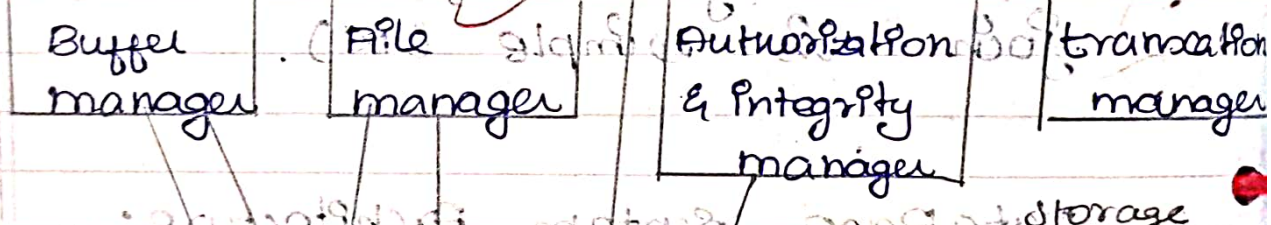 Buffer
manager
File
manager
Authorization
& integrity
manager
transcation
manager
storage